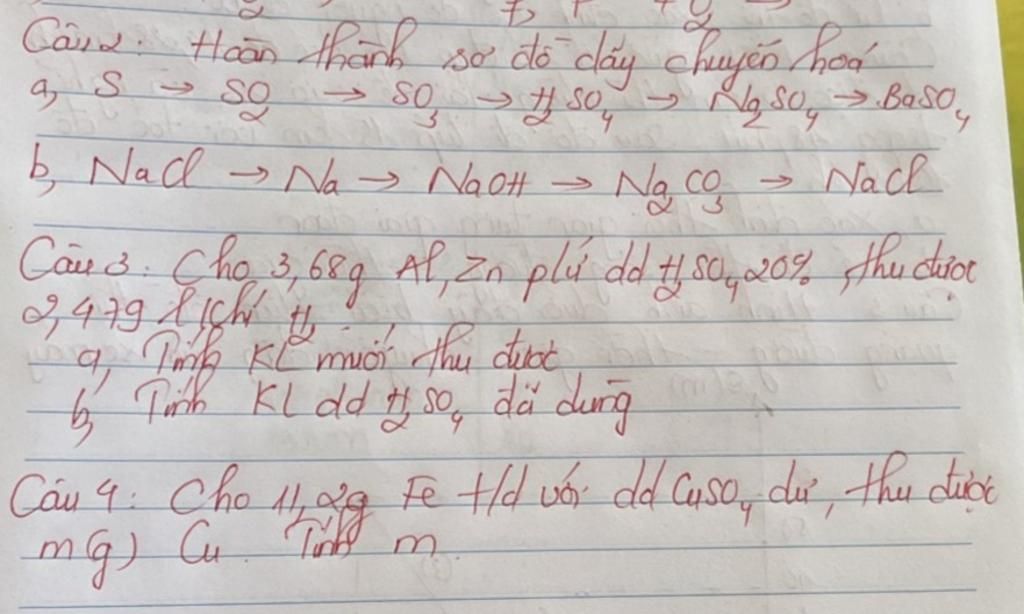 Câu 2: Hoàn thành sơ đồ dãy chuyển hoá
a, S → SO₂ → SO₃ → H₂SO₄ → Na₂SO₄ → BaSO₄
b, NaCl → Na → NaOH → Na₂CO₃ → NaCl
Câu 3. Cho 3,68g Al, Zn pứ dd H₂SO₄ 20%, thu được
2,479 l khí H₂.
a, Tính KL muối thu được
b, Tính KL dd H₂SO₄ đã dùng
Câu 4: Cho 11,2g Fe t/d với dd CuSO₄ dư, thu được
m(g) Cu. Tính m.